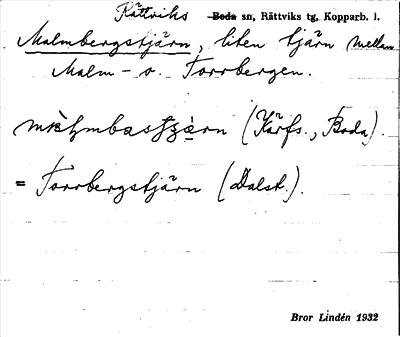 Rättviks Boda sn, Rättviks tg, Kopparb. l.
Malmbergstjärn, liten tjärn mellan
Malm- o. Torrbergen.
(Kärfs., Boda).
= Torrbergstjärn (Dalst.).
Bror Lindén 1932